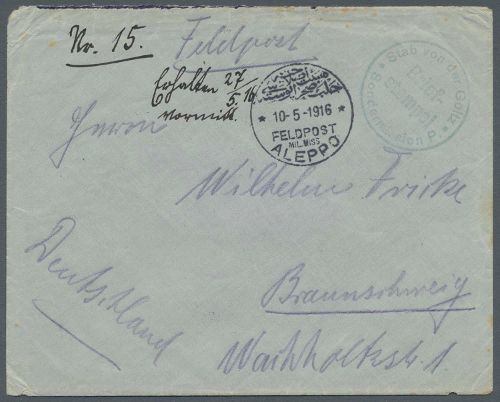 Nr. 15.
Feldpost
Erhalten 27
5. 16
vormitt.
10-5-1916
FELDPOST
MIL. MISS
ALEPPO
Stab von der Goltz
Sondermission P.
Herrn
Wilhelm Fricke
Braunschweig
Deutschland